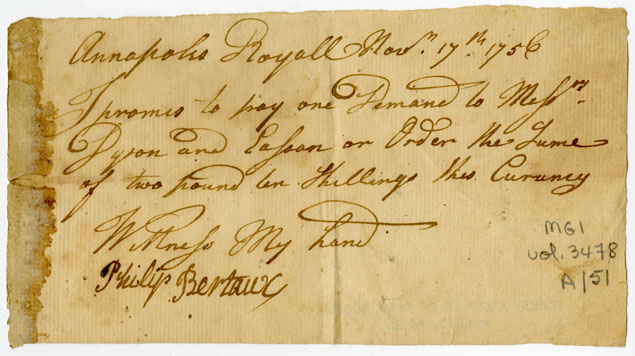 Annapolis Royall Novr. 17th. 1756
I promis to pay one Demand to Messrs.
Dyson and Easson or Order the Sume
of two pound ten Shillings this Curancy
Witness My hand
Philip Bertaux
MG1
vol. 3478
A/51